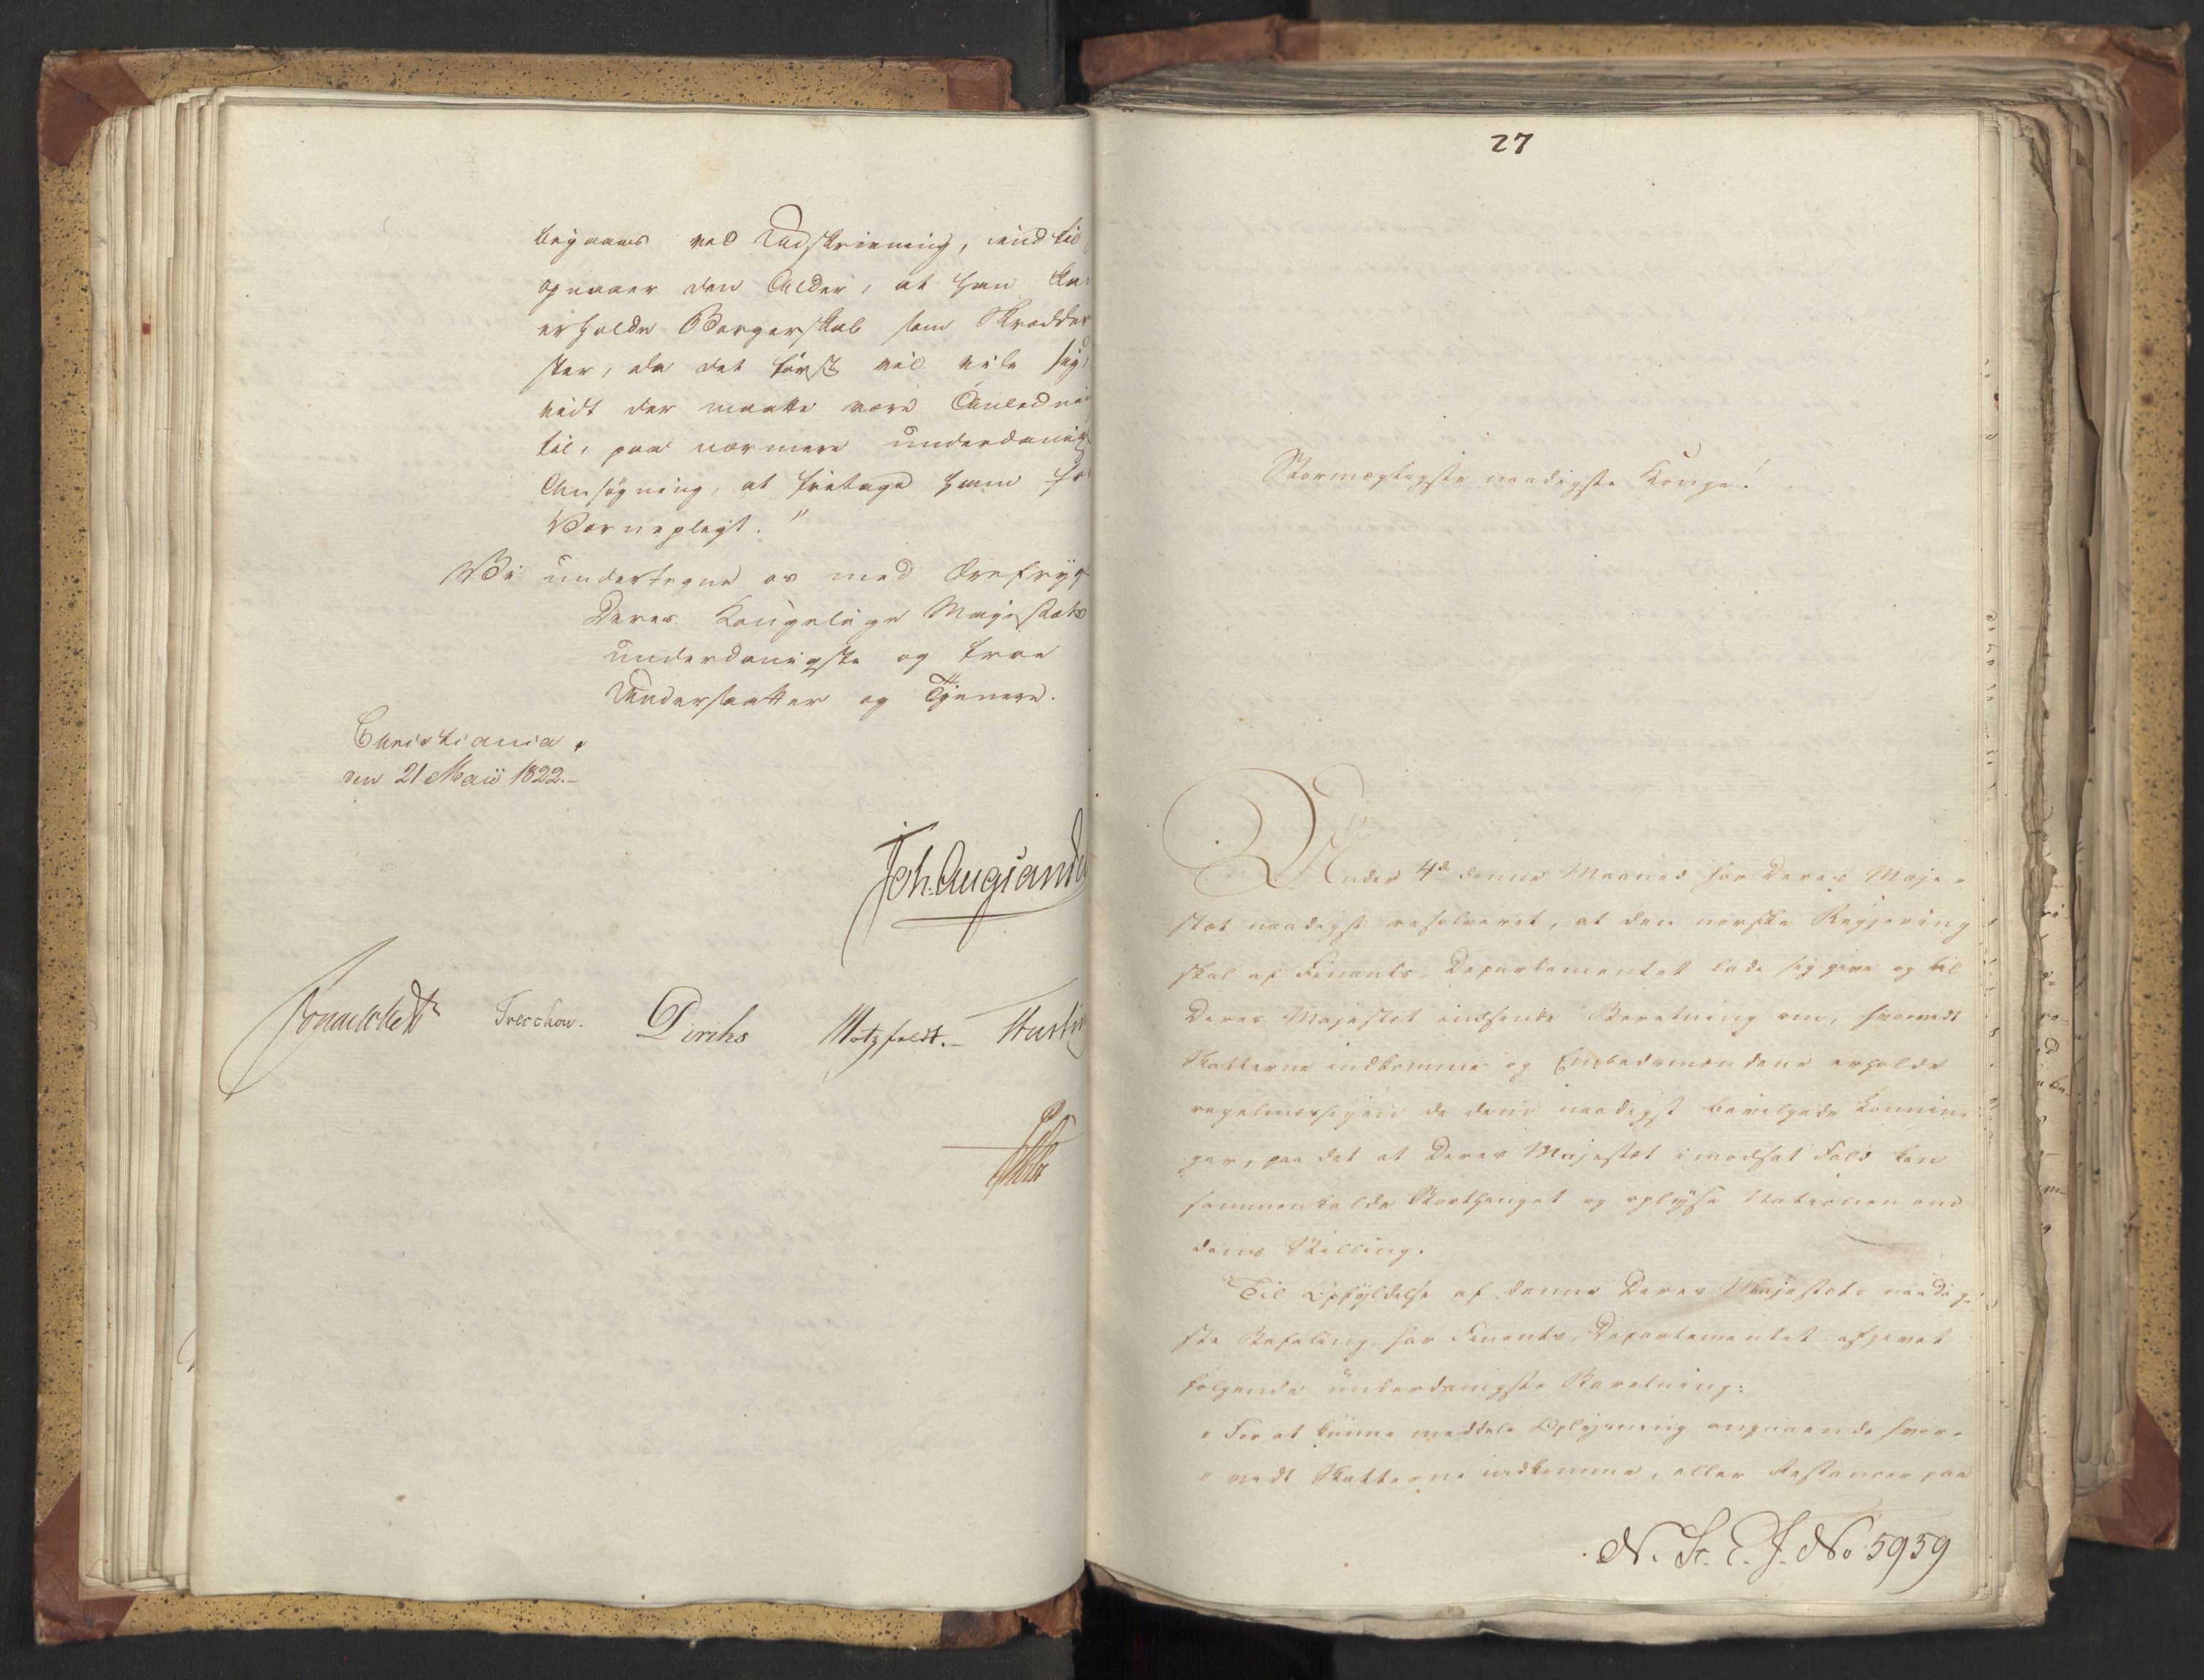 begaaes ved Udskrivning, indtil
opnaaer den Alder, at han kan
erholde Borgerskab som Skrædder
ster, da det først vil vise sig,
vidt der maatte være Anledni
til, paa nærmere underdanig
Ansøgning, at fritage ham fo
Værnepligt."
Vi undertegne os med Ærefrygt
Deres Kongelige Majestæts
underdanigste og troe
Undersaatter og Tjenere.
Christiania,
den 21 Maii 1822.-
Joh. Aug Sande
Sommerhielm Treschow. Diriks Motzfeldt.- Fasting
27
Stormægtigste naadigste Konge!
Under 4de denne Maaned har Deres Maje-
stæt naadigst resolveret, at den norske Regjering
skal af Finants-Departementet lade sig give og til
Deres Majestæt indsende Beretning om, hvorvidt
Skatterne indkomme og Embedsmændene erholde
regelmæssigen de dem naadigst bevilgede Lønnin-
ger, paa det at Deres Majestæt i modsat Fald kan
sammenkalde Storthinget og oplyse Nationen om
dens Stilling.
Til Opfyldelse af denne Deres Majestæts naadig-
ste Befaling, har Finants-Departementet afgivet
følgende underdanigste Beretning:
"For at kunne meddele Oplysning angaaende hvor-
"vidt Skatterne indkomme, eller Restancer paa
N. St. E. J. No 5959